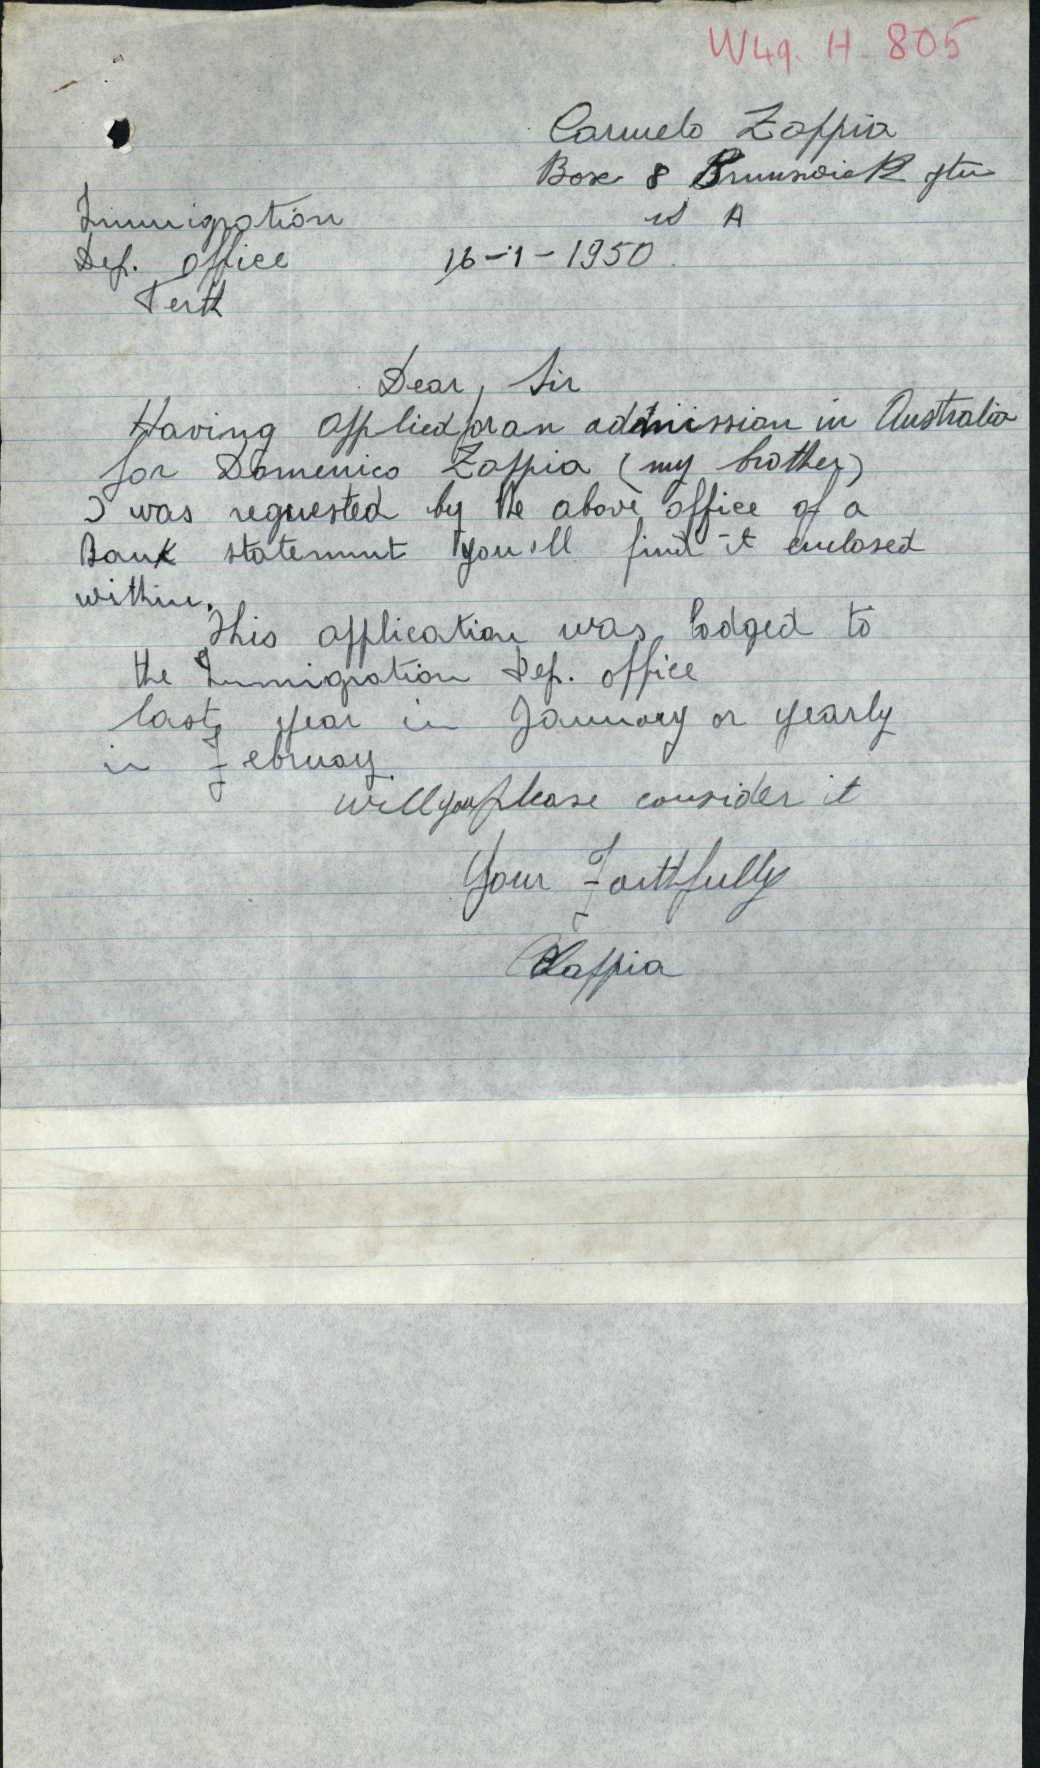 W49. H. 805
Carmelo Zappia
Box 8 Brunswick Jtn
W A
Immigration
Dep. Office
16-1-1950
Perth
Dear, Sir
Having applied for an admission in Australia
for Domenico Zappia (my brother)
I was requested by the above office of a
Bank statemnt you'll find it enclosed
within.
This application was lodged to
the Immigration Dep. office
last year in January or yearly
in February
will you please consider it
Your Faithfully
CZappia